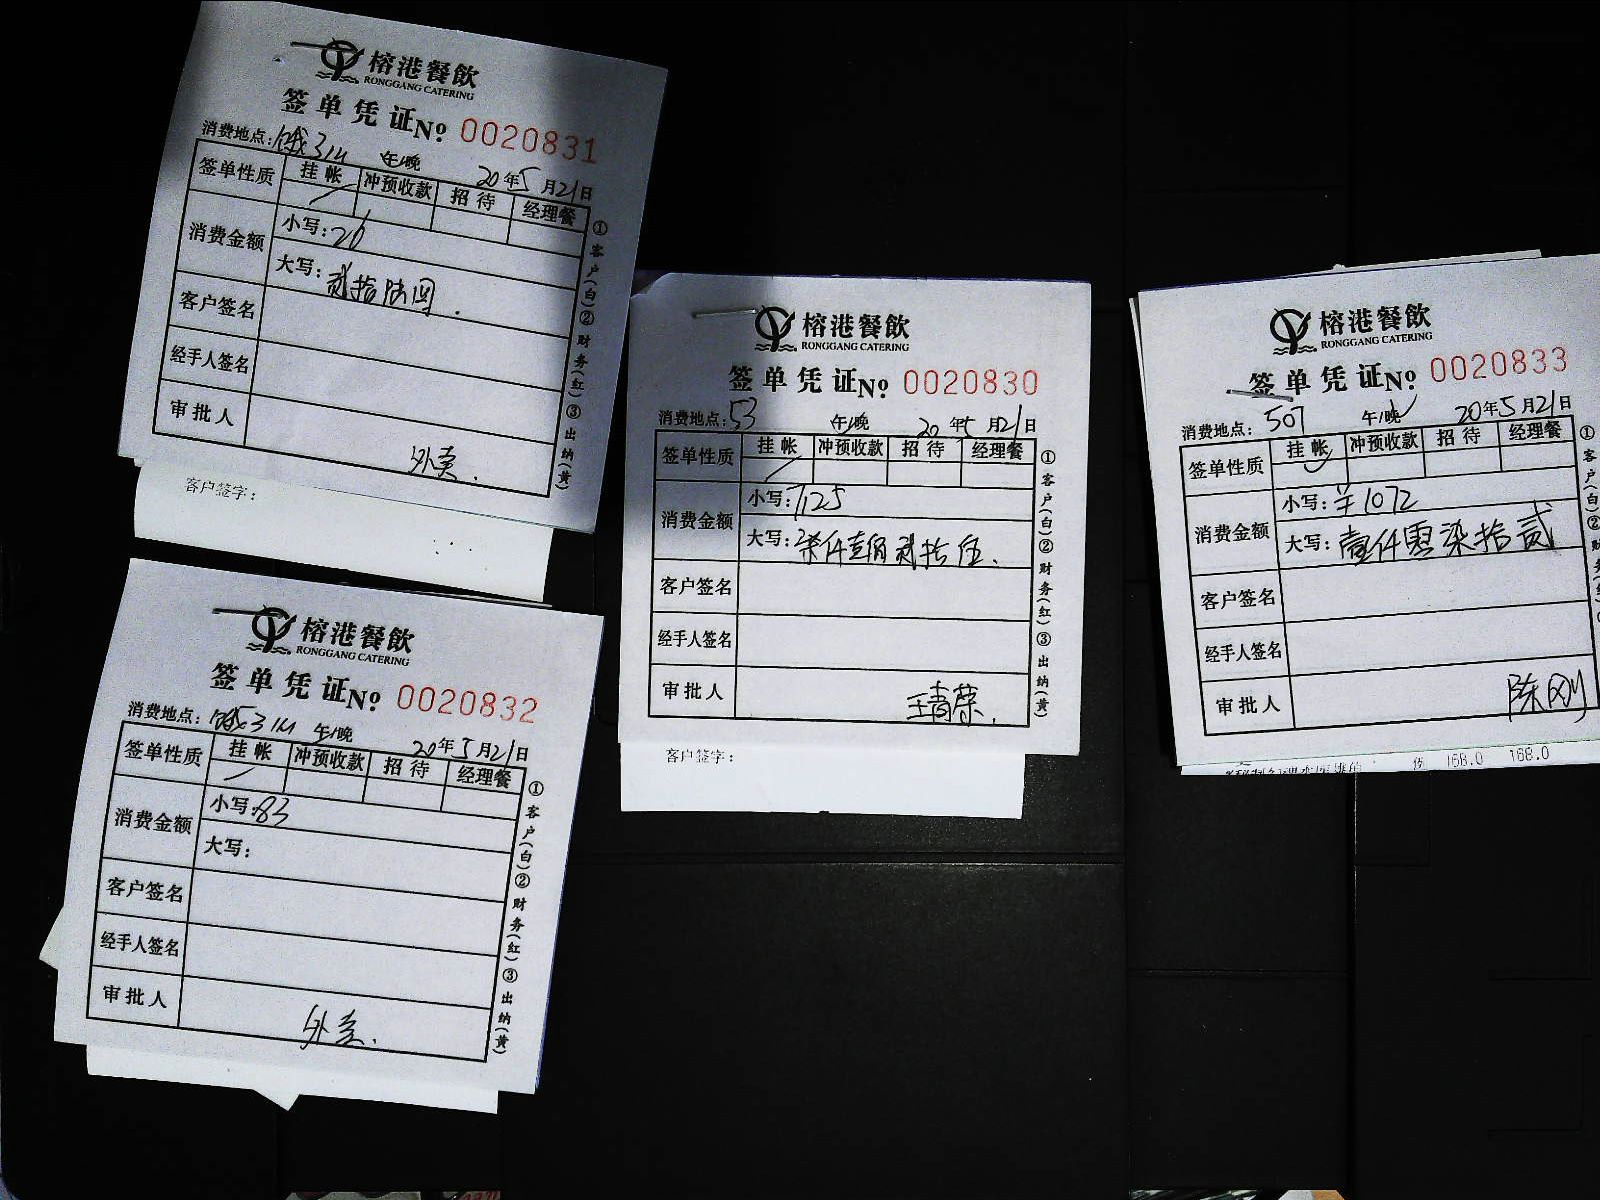 榕港餐飲
RONGGANG CATERING
签单凭证№ 0020831
消费地点: 午/晚 20年5月21日
签单性质 挂帐 冲预收款 招待 经理餐
消费金额 小写:26
大写:贰拾陆圆.
客户签名
经手人签名
审批人
外卖.
①客户(白)②财务(红)③出纳(黄)
客户签字:
榕港餐飲
RONGGANG CATERING
签单凭证№ 0020832
消费地点: 午/晚 20年5月21日
签单性质 挂帐 冲预收款 招待 经理餐
消费金额 小写:83
大写:
客户签名
经手人签名
审批人
外卖.
①客户(白)②财务(红)③出纳(黄)
榕港餐飲
RONGGANG CATERING
签单凭证№ 0020830
消费地点:53 午/晚 20年5月21日
签单性质 挂帐 冲预收款 招待 经理餐
消费金额 小写:7125
大写:柒仟壹佰贰拾伍.
客户签名
经手人签名
审批人
①客户(白)②财务(红)③出纳(黄)
客户签字:
榕港餐飲
RONGGANG CATERING
签单凭证№ 0020833
消费地点:507 午/晚 20年5月21日
签单性质 挂帐 冲预收款 招待 经理餐
消费金额 小写:¥1072
大写:壹仟零柒拾贰
客户签名
经手人签名
审批人 陈刚
①客户(白)②财务(红)
168.0 168.0